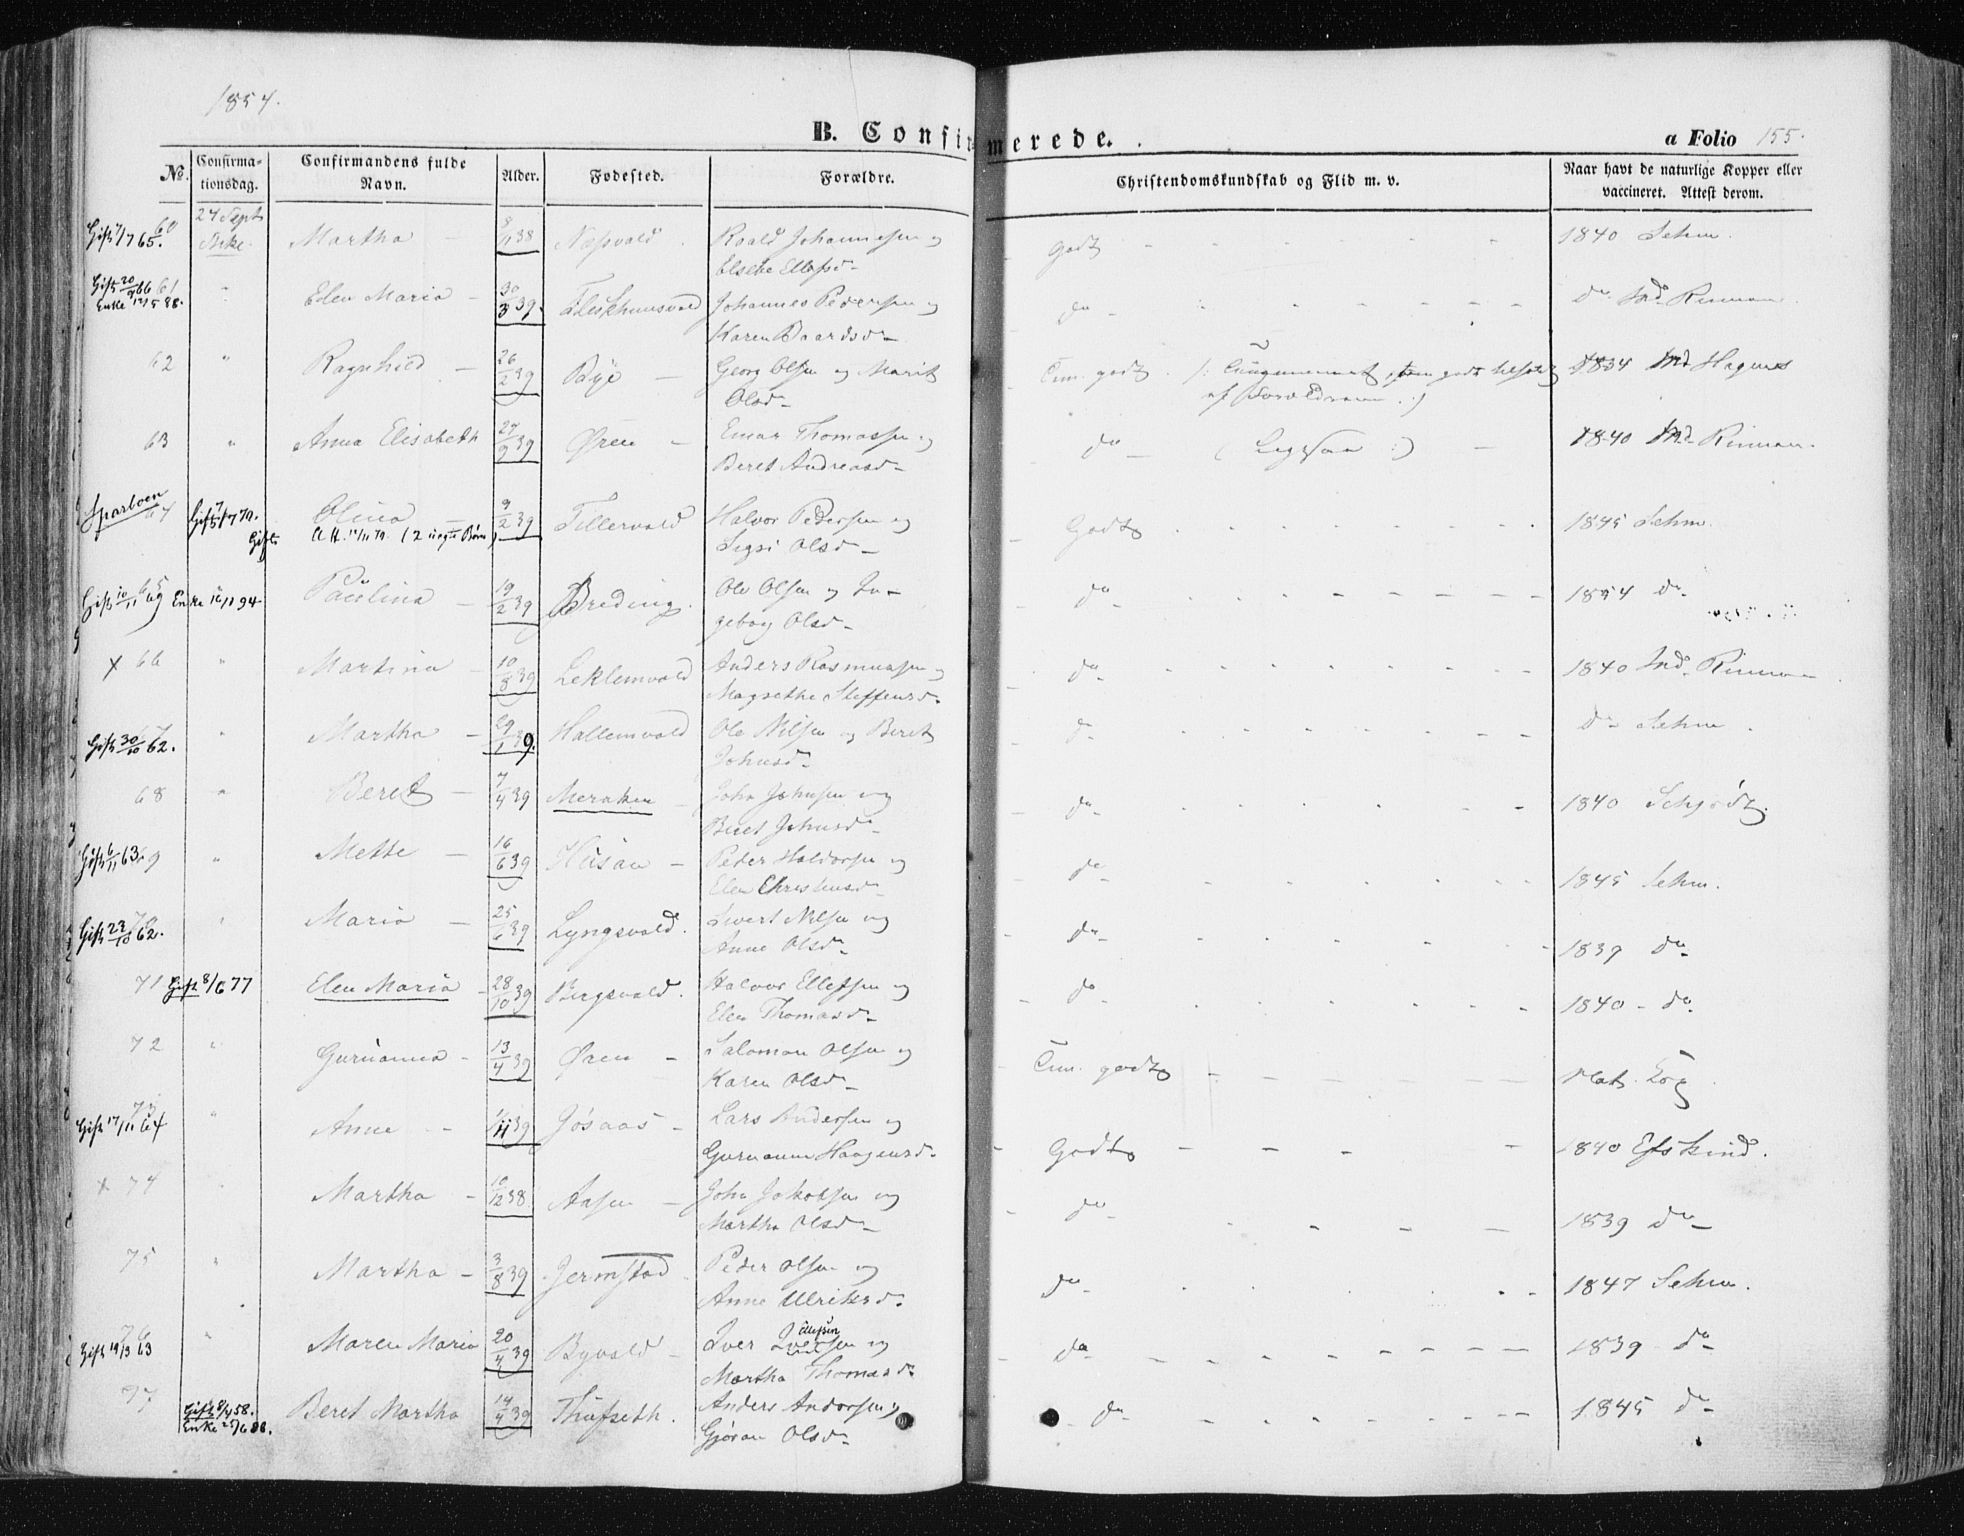 1854.
B. Confirmerede.
a Folio 155.
No. Confirmationsdag. Confirmandens fulde Navn. Alder. Fødested. Forældre. Christendomskundskab og Flid m. v. Naar havt de naturlige Kopper eller vaccineret. Attest derom.
Gift 7/7 65. 60 24 Sept Martha — 11 38 Næsvald Roald Johannesen og godt 1840 Sehm.
Elsebe Ellefsd.
Gift 20/9 66 61 " Elen Maria — 30/3 39. Johannes Pedersen og do 
Enke 12/5 88. Karen Baardsd.
62 " Ragnhild — 26/2 39 Bye — Georg Olsen og Marit Olsd. godt 1834 Md Hagenes
63 " Anna Elisabeth 27/9 39 Øren — Einar Thomassen og do 1840 Md. Rinnan.
Beret Andreasd.
Sparboen 64 Gift 7/5 70. Olina — 9/2 39 Tillervald Halvor Pedersen og Godt 1845 Sehm.
Gift Att. 17/11 70. (2 uægte Børn) Sigri Olsd.
Gift 10/11 69 65 Enke 12/1 94 Paulina — 19/2 39 Breding. Ole Olsen og Ingeborg Olsd. do 1854 do
x 66 " Martina — 10/8 39 Leklemvald Anders Rasmussen og do 1840 Md. Rinnan
Magrethe Steffensd.
Gift 30/10 62. 67 " Martha — 29/1 39. Hallemvald Ole Nilsen og Beret Johnsd. do do Sehm.
68 " Beret — 7/4 39 Meraker John Johnsen og do 1840 Schjødt.
Beret Johnsd.
Gift 6/11 63. 69 " Mette — 16/6 39 Husan — Peder Haldorsen og do 1845 Sehm.
Elen Christensd.
Gift 29/10 62. 70 " Maria — 25/6 39 Lyngsvald. Sivert Nilsen og do 1839 do
Anne Olsd.
71 Gift 8/6 77 Elen Maria — 28/10 39 Bergsvald. Halvor Ellefsen og do 1840 do
Elen Thomasd.
72 " Guruanna — 13/4 39 Øren — Salomon Olsen og godt
Karen Olsd.
Gift 17/11 64 73 " Anne — 11 39 Jøsaas — Lars Andersen og Godt 1840 Eskind.
Guruanna Haagensd.
x 74 " Martha — 10/12 38 Aasen — John Jakobsen og do 1839 do
Martha Olsd.
75 " Martha — 3/8 39 Jermstad Peder Olsen og do 1847 Sehm.
Anne Ulriksd.
Gift 19/3 63 76 " Maren Maria 20/4 39 Byvald — Iver Iversen Ellefsen og do 1839 do
Martha Thomasd.
77 Gift 8/4 58. Beret Martha 14/4 39 Thufseth. Anders Andersen og do 1845 do
Enke 25/6 88. Gjøran Olsd.